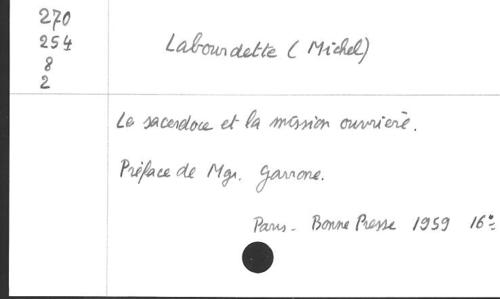 270
254
8
2
Labourdette (Michel)
Le sacerdoce et la mission ouvrière.
Préface de Mgr. Garrone.
Paris - Bonne Presse 1959 16°